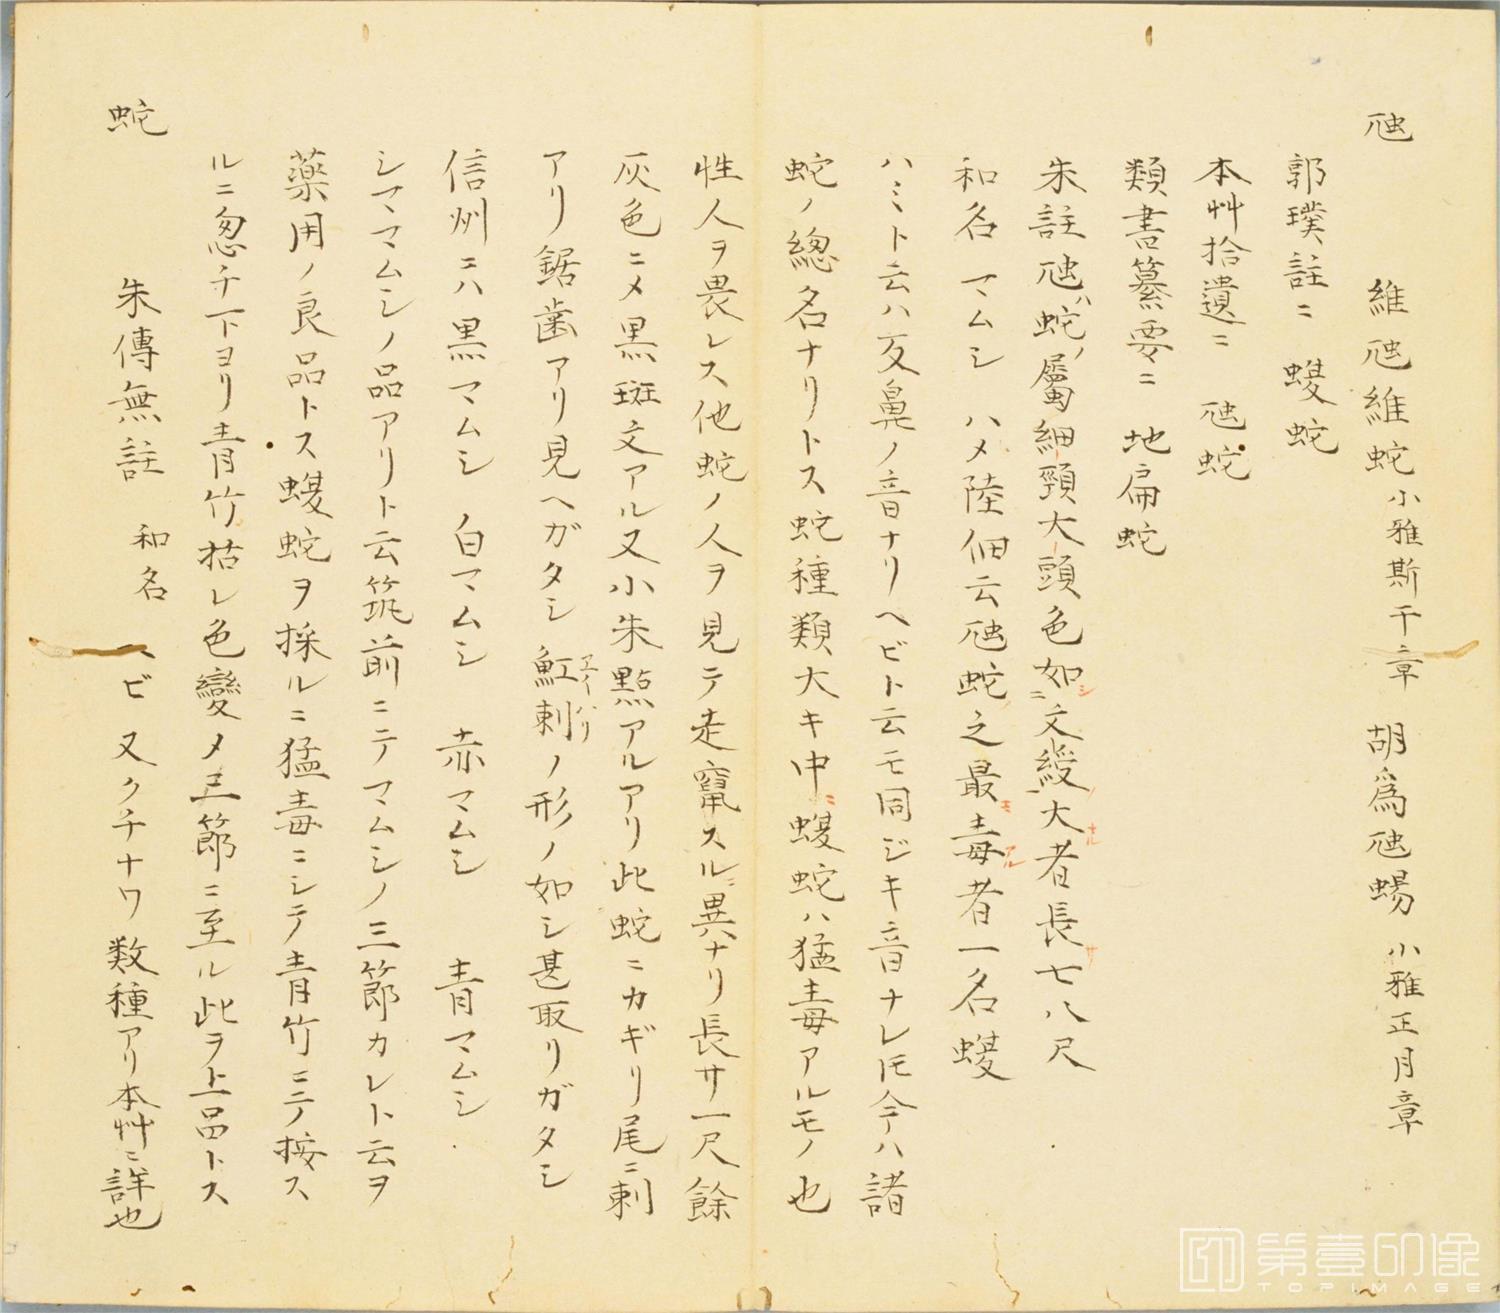 虺　維虺維蛇 小雅斯干章　胡爲虺蜴 小雅正月章
郭璞註ニ　蝮蛇
本艸拾遺ニ　虺蛇
類書纂要ニ　地扁蛇
朱註虺ハ蛇ノ屬細頸大頭色如シニ文綬ノ大ナル者長サ七八尺
和名　マムシ　ハメ陸佃云虺蛇之最モ毒アル者一名蝮
ハミト云ハ反鼻ノ音ナリヘビト云モ同ジキ音ナレ𪜈今テハ諸
蛇ノ總名ナリトス蛇種類大キ中ニ蝮蛇ハ猛毒アルモノ也
性人ヲ畏レス他蛇ノ人ヲ見テ走竄スルニ異ナリ長サ一尺餘
灰色ニメ黒斑文アル又小朱點アルアリ此蛇ニカギリ尾ニ刺
アリ鋸歯アリ見ヘガタシ魟刺エイハリノ形ノ如シ甚取リガタシ
信州ニハ黒マムシ　白マムシ　赤マムシ　青マムシ
シママムシノ品アリト云筑前ニテマムシノ三節カレト云ヲ
薬用ノ良品トス蝮蛇ヲ採ルニ猛毒ニシテ青竹ニテ按ス
ルニ忽チ下ヨリ青竹枯レ色變メ三節ニ至ル此ヲ上品トス
蛇　朱傳無註　和名　ヘビ又クチナワ数種アリ本艸ニ詳也
第壹印像
TOPIMAGE